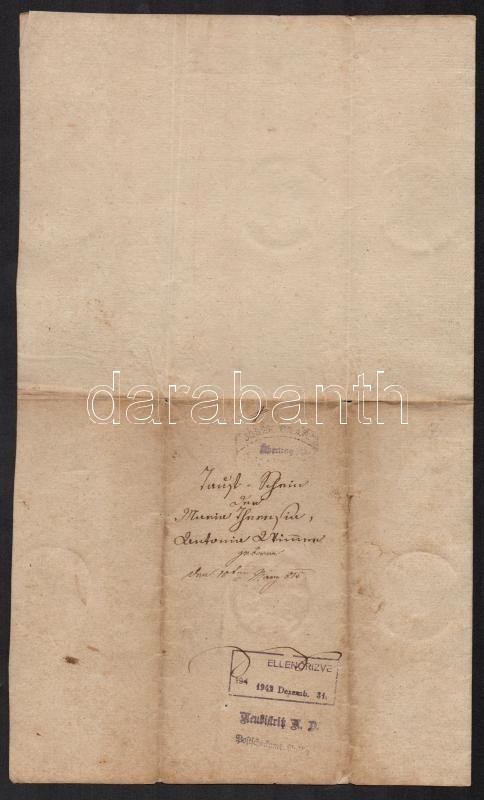 darabanth
Tauf-Schein
der
Maria Theresia,
Antonia Wimmer
geboren
den 10ten März 815
ELLENŐRIZVE
194
1942 Dezemb. 31.
Neubistritz N. D.